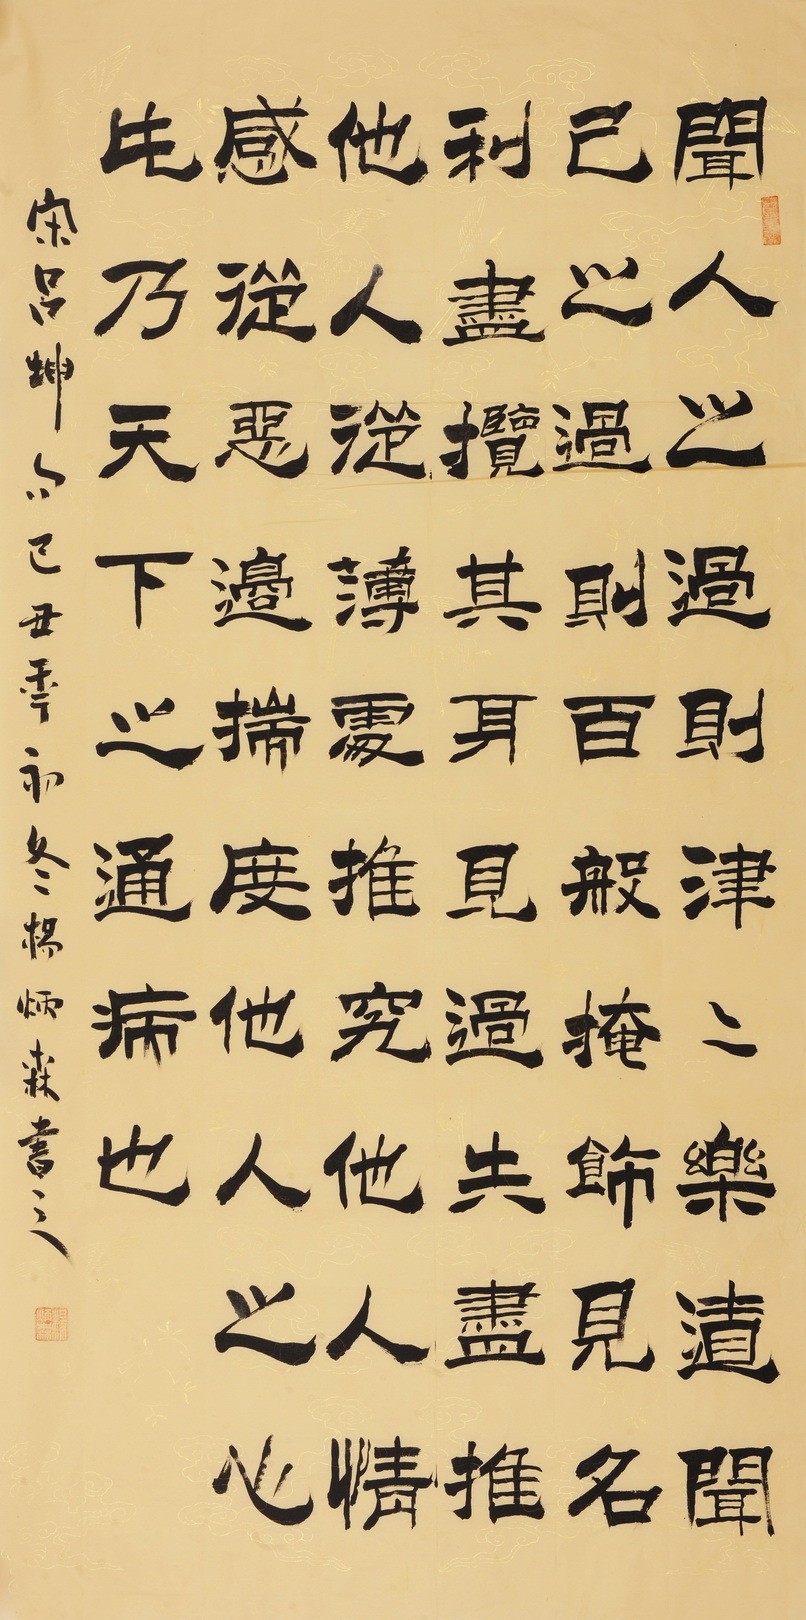 聞人之過則津〻樂道聞
己之過則百般掩飾見名
利盡攬其身見過失盡推
他人從薄處推究他人情
感從惡邊揣度他人之心
此乃天下之通病也
宋呂坤句己丑年初冬楊炳森書之